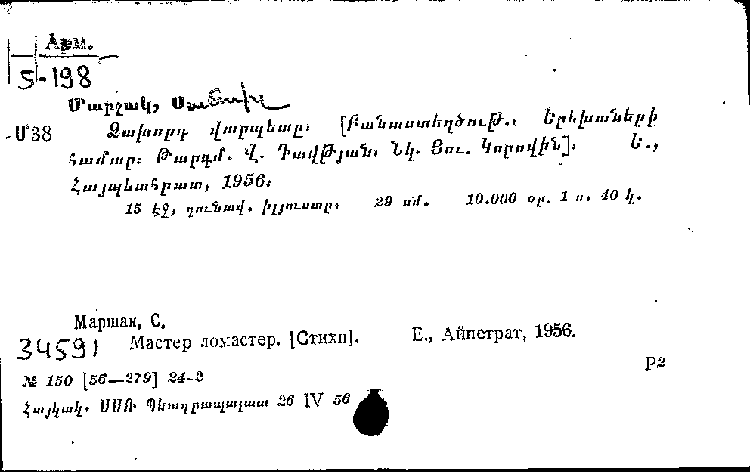 Арм.
5-198
Մարշակ, Սամուիլ
Մ38 Ջախորդ վարպետը։ [Բանաստեղծութ.։ Երեխաների
համար։ Թարգմ. Վ. Դավթյան։ Նկ. Յու. Կորովին]։ Ե.,
Հայպետհրատ, 1956։
15 էջ, գունավ. իլյուստր։ 29 սմ. 10.000 օր. 1 ռ. 40 կ.
Маршак, С.
34591 Мастер ломастер. [Стихи]. Е., Айпетрат, 1956.
P2
№ 150 [56—279] 24-3
Հայկակ. ՍՍՌ Պետգրապալատ 26 IV 56